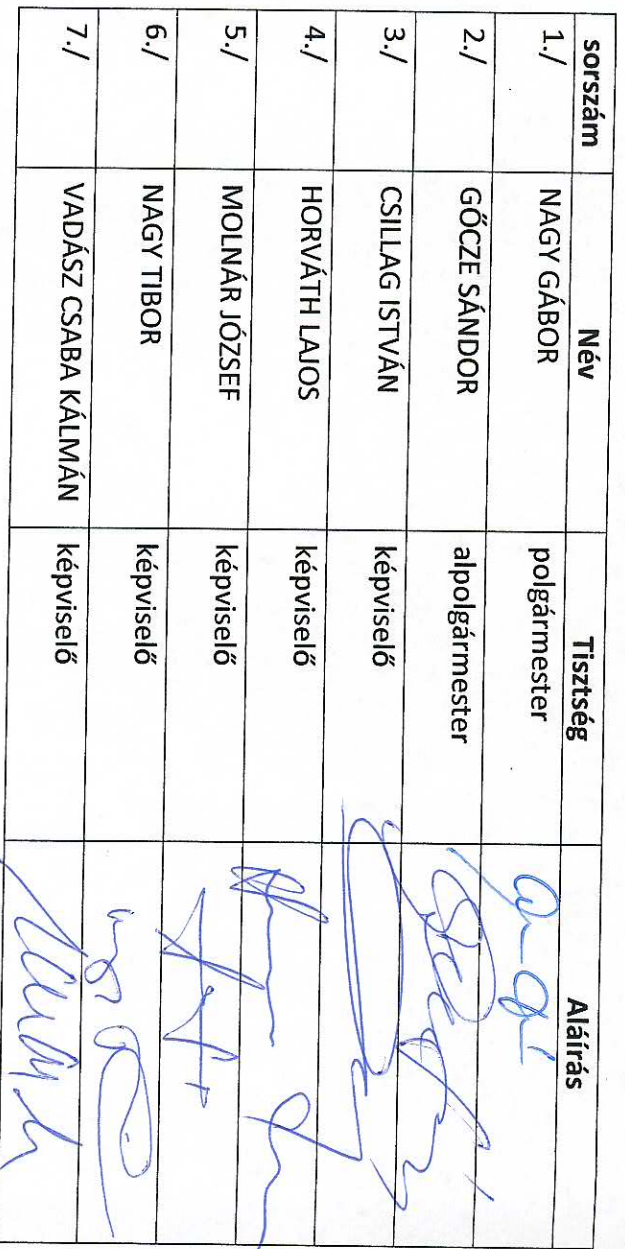 sorszám Név Tisztség Aláírás
1./ NAGY GÁBOR polgármester
2./ GŐCZE SÁNDOR alpolgármester
3./ CSILLAG ISTVÁN képviselő
4./ HORVÁTH LAJOS képviselő
5./ MOLNÁR JÓZSEF képviselő
6./ NAGY TIBOR képviselő
7./ VADÁSZ CSABA KÁLMÁN képviselő